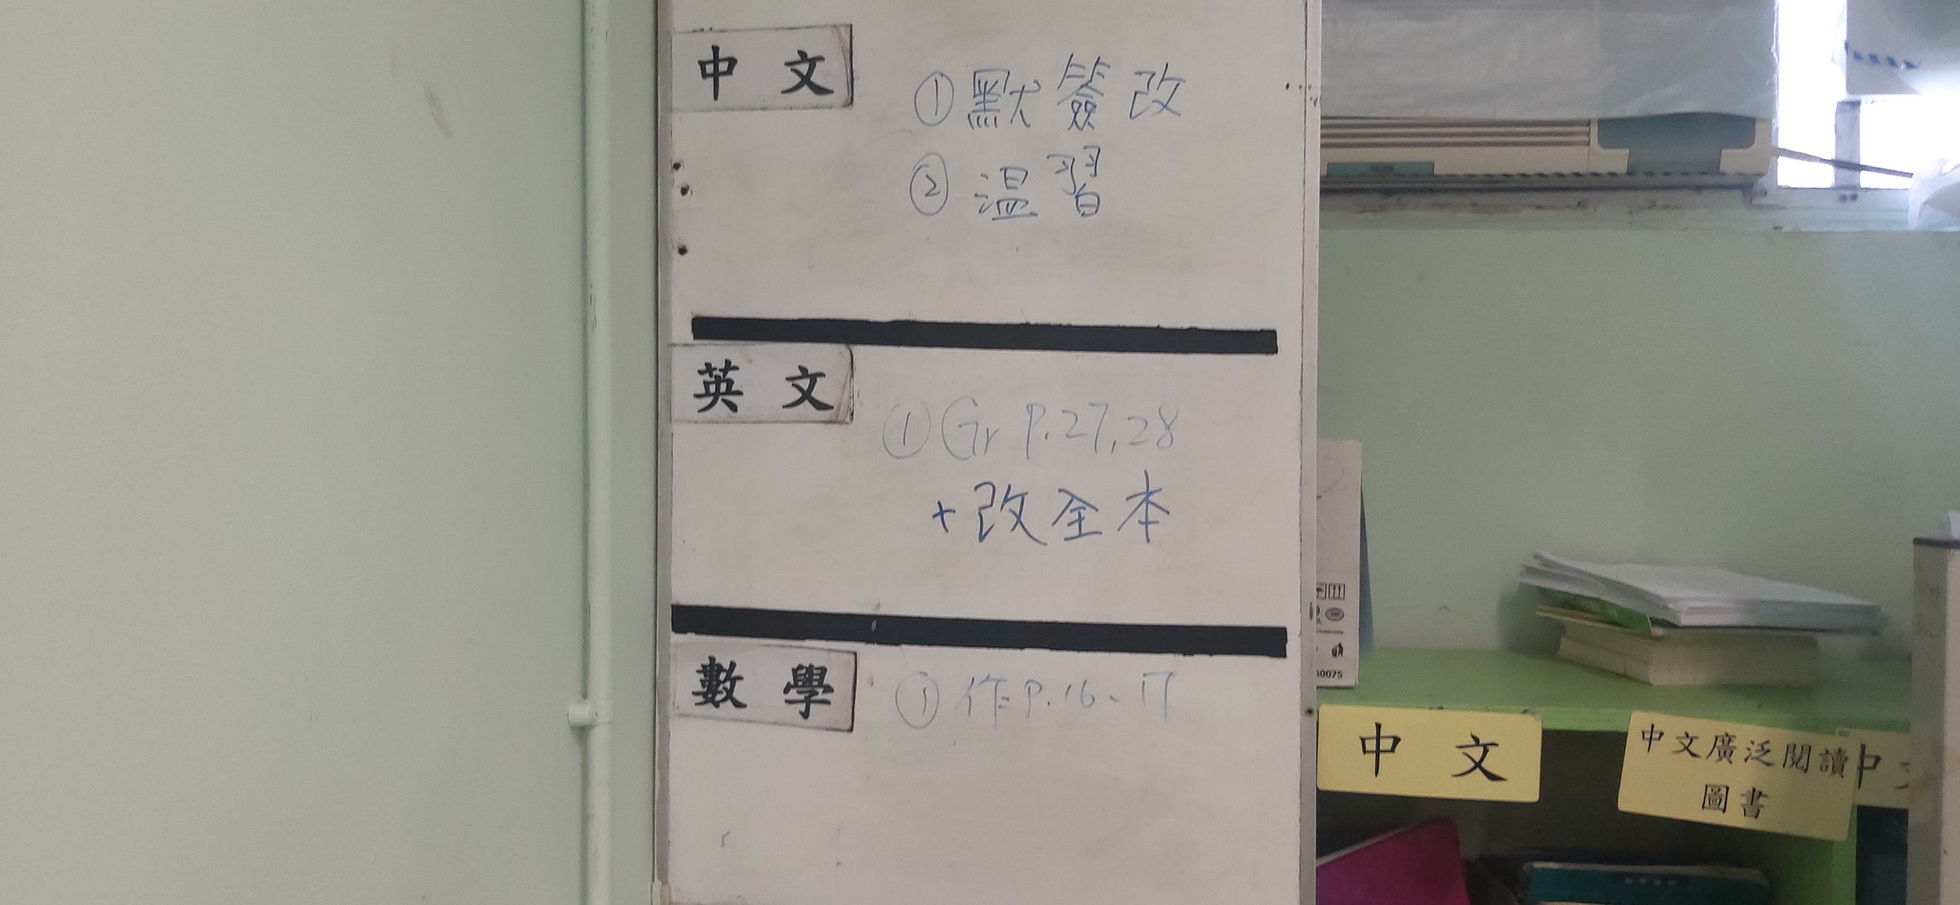 中文
①默簽改
②溫習
英文
①Gr P.27,28
+改全本
數學
①作P.16、17
中文
中文廣泛閱讀
圖書
中
60075